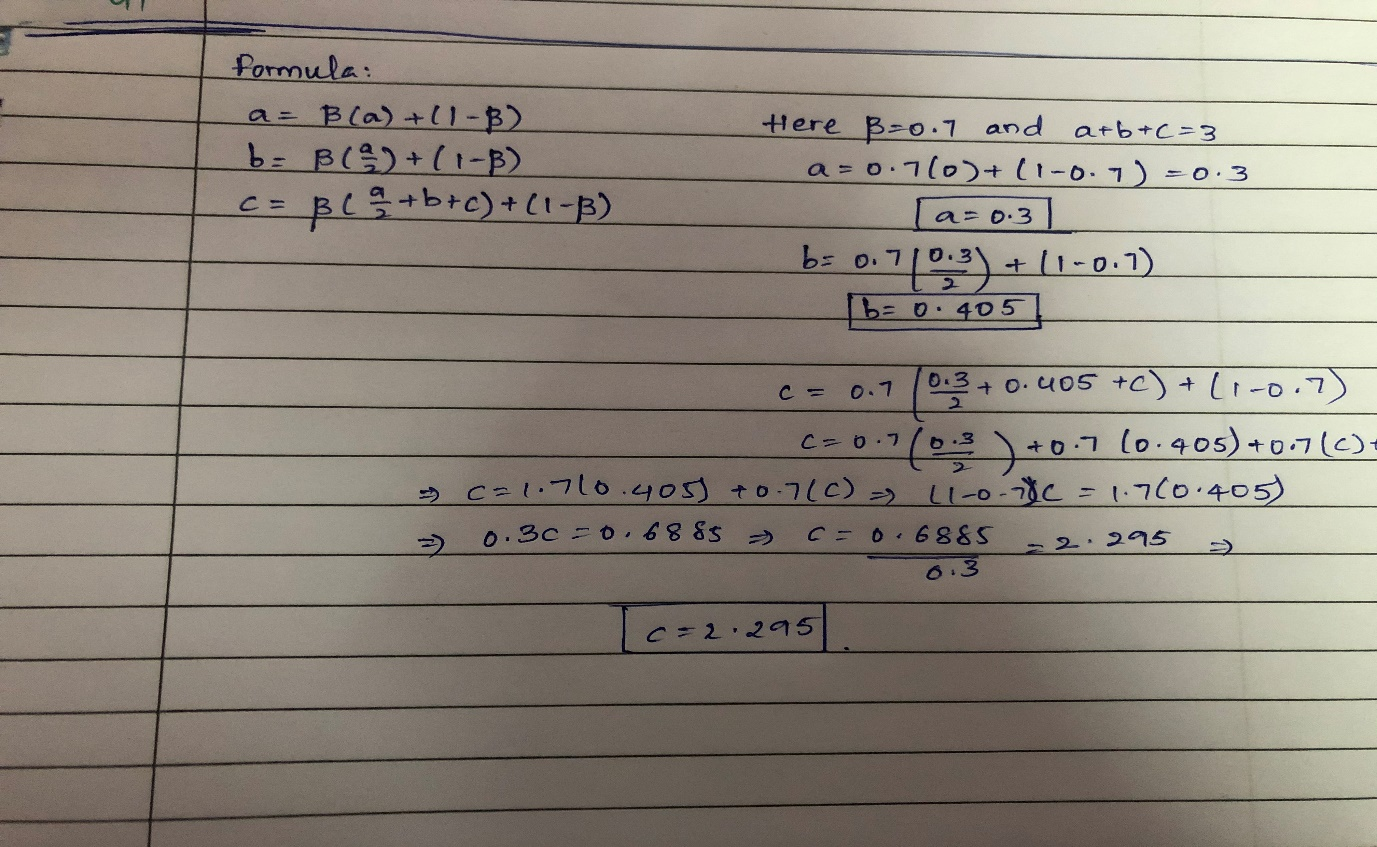 Formula:
a = β(a) + (1-β)
b = β(a/2) + (1-β)
c = β(a/2 + b + c) + (1-β)
Here β=0.7 and a+b+c=3
a = 0.7(0) + (1-0.7) = 0.3
a = 0.3
b = 0.7(0.3/2) + (1-0.7)
b = 0.405
c = 0.7(0.3/2 + 0.405 + c) + (1-0.7)
c = 0.7(0.3/2) + 0.7(0.405) + 0.7(c) +
⇒ c = 1.7(0.405) + 0.7(c) ⇒ (1-0.7)c = 1.7(0.405)
⇒ 0.3c = 0.6885 ⇒ c = 0.6885/0.3 = 2.295 ⇒
c = 2.295.